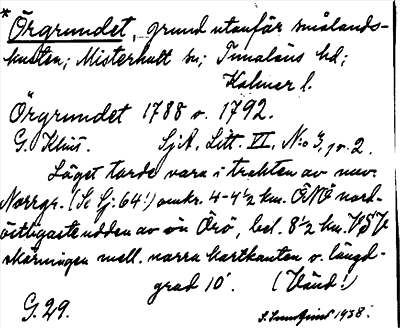 * Örgrundet, grund utanför smålands-
kusten; Misterhult sn; Tunaläns hd;
Kalmar l.
Örgrundet 1788 o. 1792.
G. Klint. SjA. Litt. VI, No 3, nr. 2.
Läget torde vara i trakten av nuv.
Norrgr. (Se Gj: 64!) omkr. 4-4½ km. ÖNÖ nord-
östligaste udden av ön Örö, bel. 8½ km. VSV
skärningen mell. norra kartkanten o. längd-
grad 10'. (Vänd!)
G. 29. S. Lundqvist 1938.